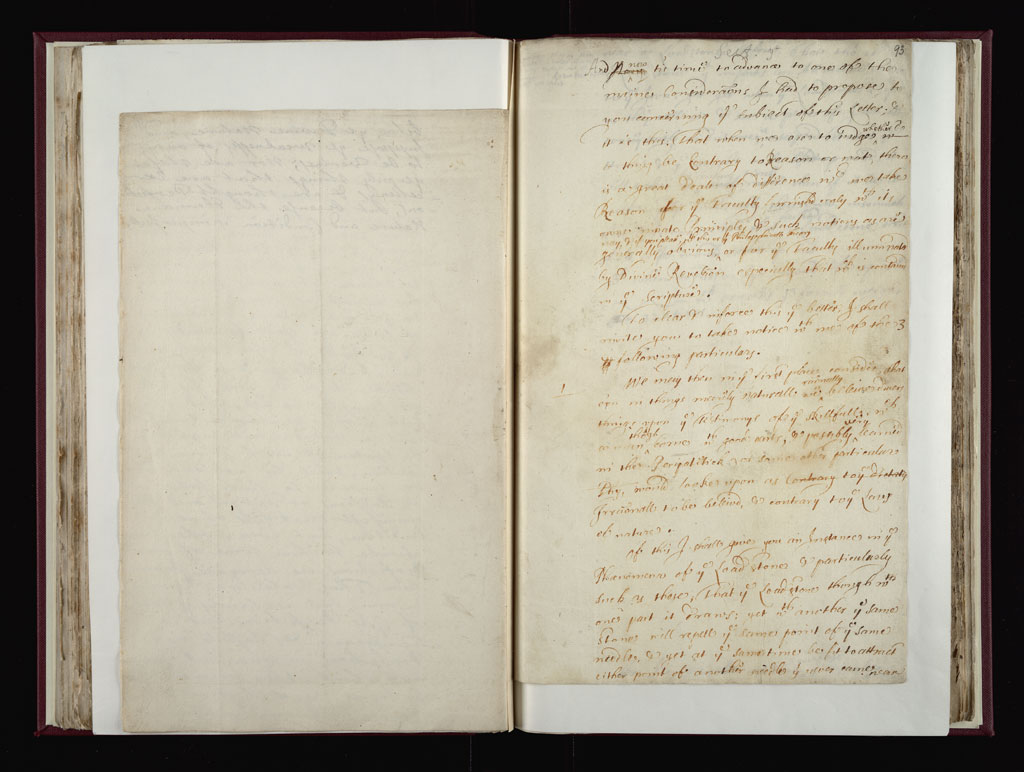 93
Sect.
And now tis time to advance to one of the
maine Considerac̄ons I had to propose to
you concerning yͤ subject of this Letter; &
it is this, That when we are to Judge whether a
thing be Contrary to Reason or not, there
is a great deale of difference wͭ we take
Reason for yͤ Faculty furnish'd only wͭʰ its
owne innate Principles & such notions as are
generally obvious, or for yͤ Faculty illuminated
by Divine Revelac̄on especially that wͨʰ is contain'd
in yͤ Scripture.
To clear & inforce this yͤ better, I shall
invite you to take notice wͭʰ me of the 3
following particulars.
1
We may then in yͤ first place consider, that
ev'n in things meerely naturall we rationally believe many
things upon yͤ Testimony of yͤ skillfull, wͨʰ
a man though wͭʰ good and, & possibly learned
in the Peripatetick or some other particular
Phy, would looke upon as Contrary to yͤ
Irrationall to be believ'd, & contrary to yͤ Laws
of nature.
Of this I shall give you an Instance in yͤ
Phaenomena of yͤ Loadstone & particularly
such as these, That yͤ Loadstone though wͭʰ
one part it draws; yet wͭʰ another yͤ same
Stone will repell yͤ same point of yͤ same
needle, & yet at yͤ same time be fit to attract
either point of another needle yͭ never came near